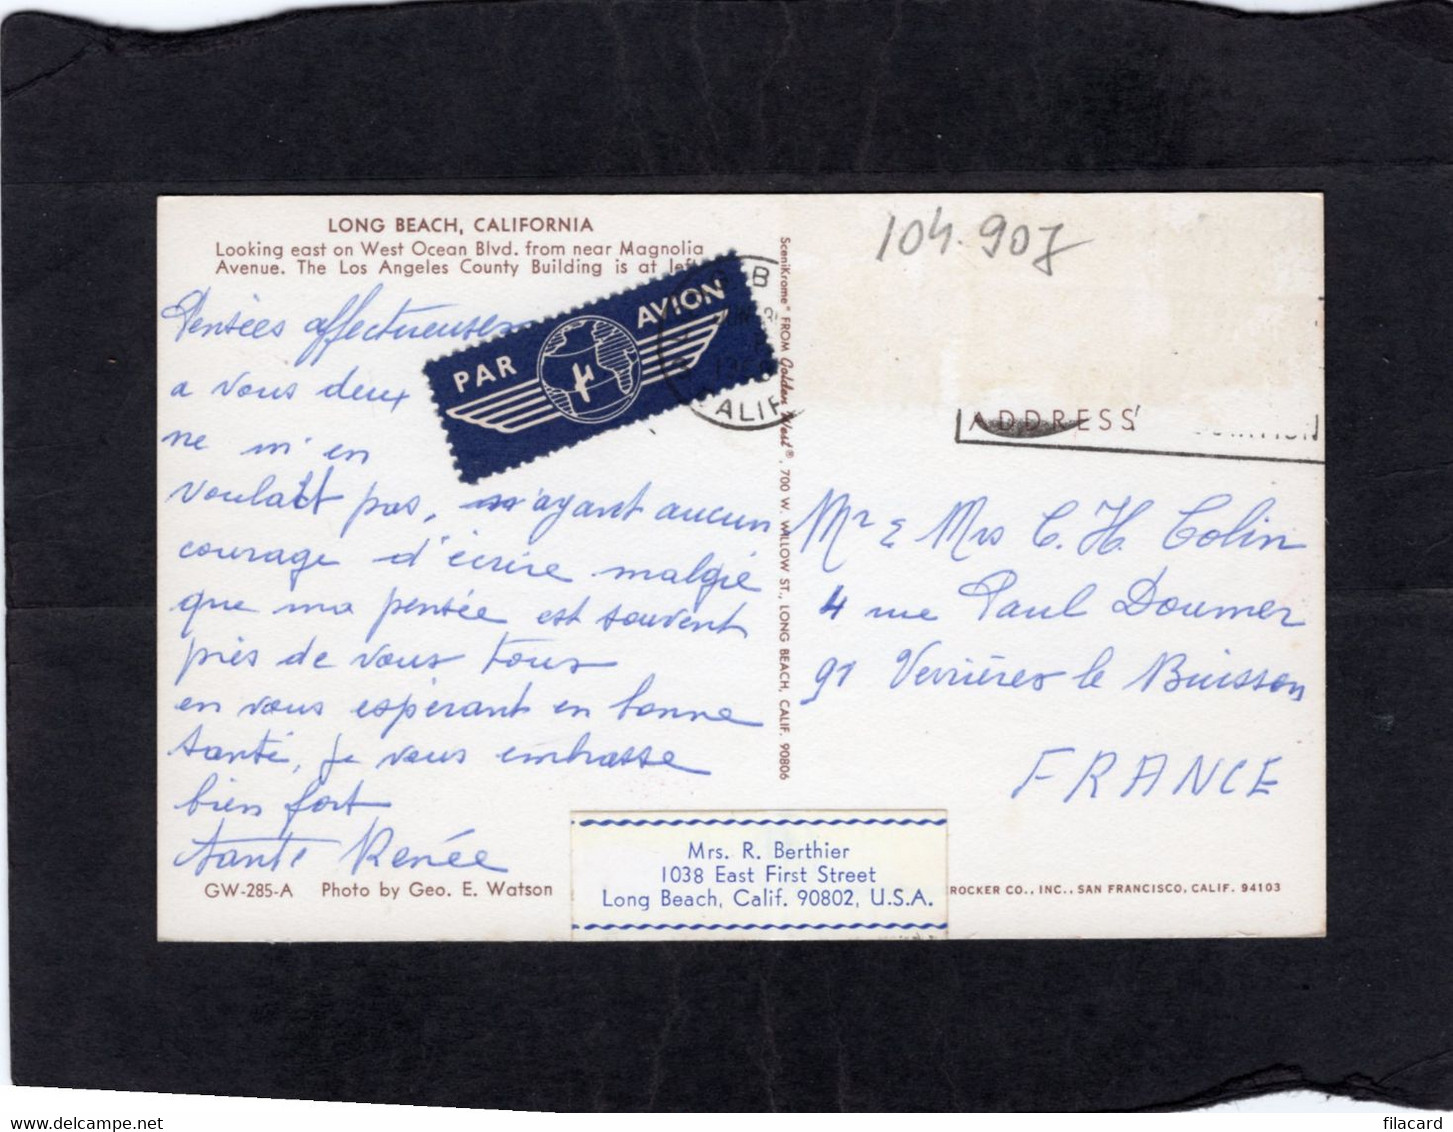 LONG BEACH, CALIFORNIA
Looking east on West Ocean Blvd. from near Magnolia
Avenue. The Los Angeles County Building is at left
Pensées affectueuses
a vous deux
ne m'en
voulait pas, n'ayant aucun
courage d'écrire malgré
que ma pensée est souvent
près de vous tous
en vous espérant en bonne
santé, je vous embrasse
bien fort
tante Renée
GW-285-A Photo by Geo. E. Watson
PAR AVION
CALIF
SceniKrome® FROM Golden West®, 700 W. WILLOW ST., LONG BEACH, CALIF. 90806
104.907
ADDRESS
Mr & Mrs C. H. Colin
4 rue Paul Doumer
91 Verrières le Buisson
FRANCE
Mrs. R. Berthier
1038 East First Street
Long Beach, Calif. 90802, U.S.A.
ROCKER CO., INC., SAN FRANCISCO, CALIF. 94103
filacard
delcampe.net